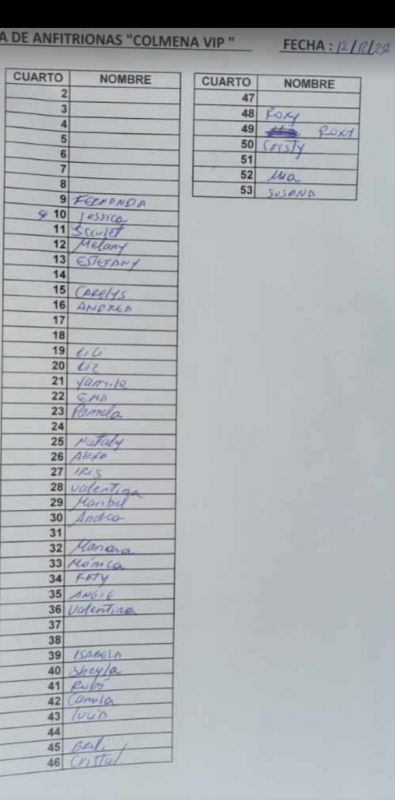 A DE ANFITRIONAS "COLMENA VIP "
FECHA : 12/12/22
CUARTO NOMBRE
2
3
4
5
6
7
8
9 FERNANDA
10 Jessica
11 Scarlet
12 Melany
13 ESTEFANY
14
15 CARELYS
16 ANDREA
17
18
19 Lili
20 Liz
21
22 EMA
23 Pamela
24
25 Nataly
26
27 IRIS
28 Valentina
29 Maribel
30 Andrea
31
32 Mariana
33 Mónica
34
35 ANGIE
36 Valentina
37
38
39 ISABELA
40 Sheyla
41 Rubi
42 Camila
43 Lucia
44
45
46 Cristal
CUARTO NOMBRE
47
48 Roxy
49 Roxy
50 Cristy
51
52 Mia
53 SUSANA